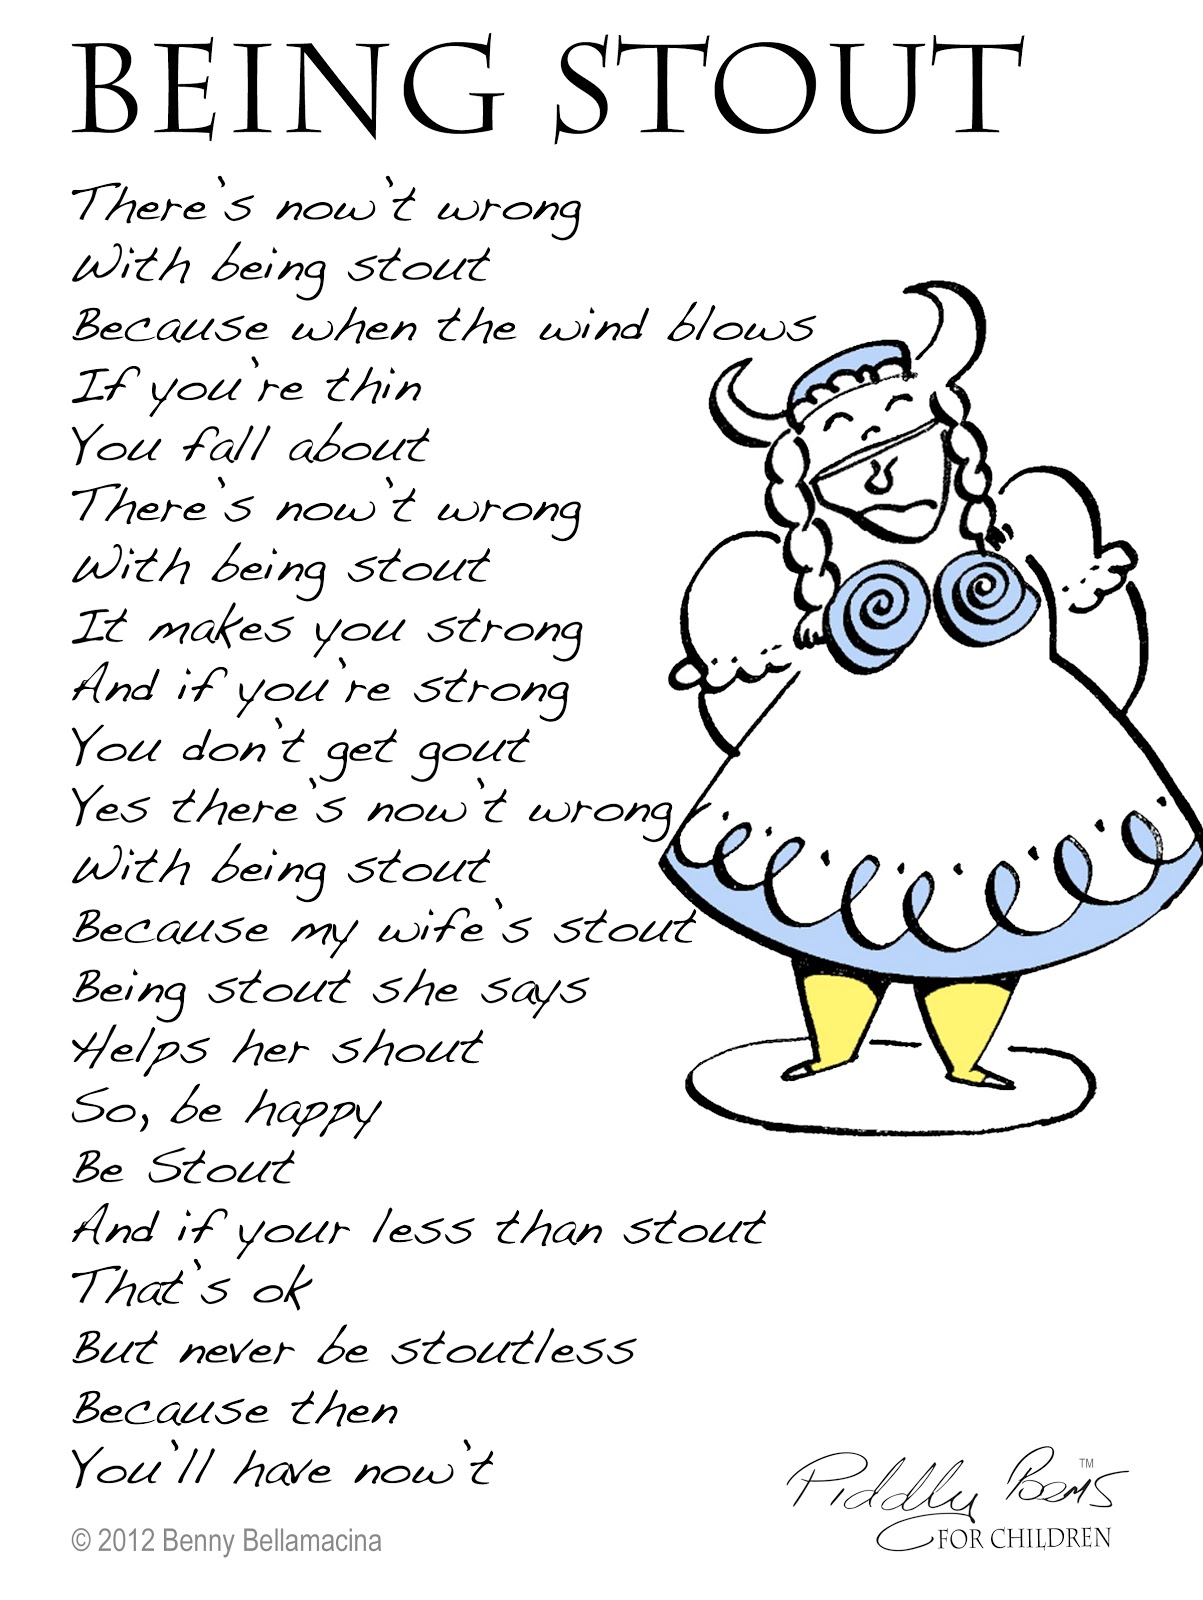 BEING STOUT
There's now't wrong
With being stout
Because when the wind blows
If you're thin
You fall about
There's now't wrong
With being stout
It makes you strong
And if you're strong
You don't get gout
Yes there's now't wrong
With being stout
Because my wife's stout
Being stout she says
Helps her shout
So, be happy
Be Stout
And if your less than stout
That's ok
But never be stoutless
Because then
You'll have now't
Piddly Poems™
FOR CHILDREN
© 2012 Benny Bellamacina